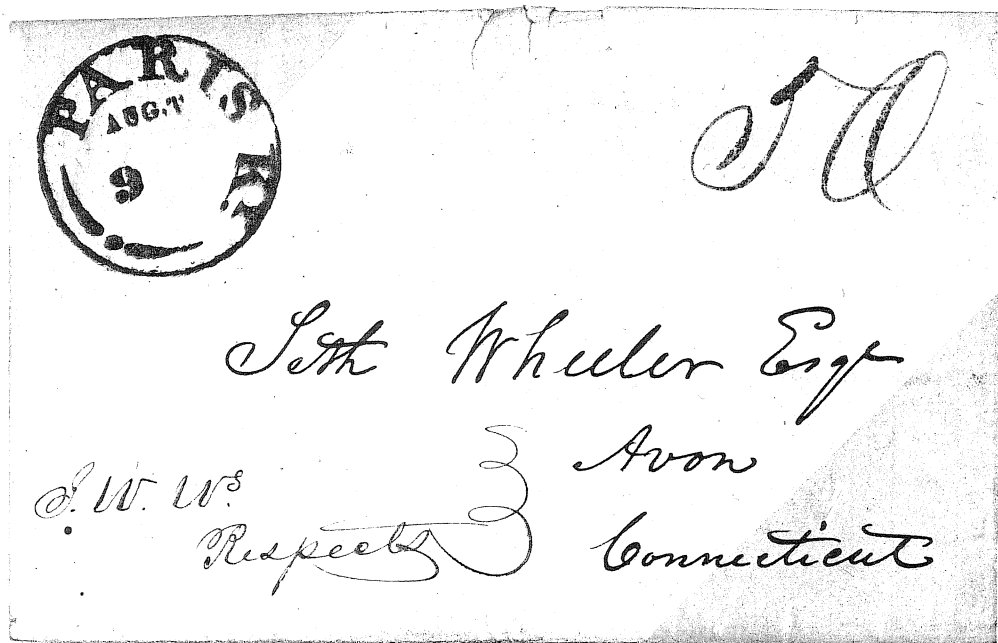 PARIS Ky.
AUG.T
9
10
Seth Wheeler Esqr
Avon
Connecticut
J. W. Ws
Respects